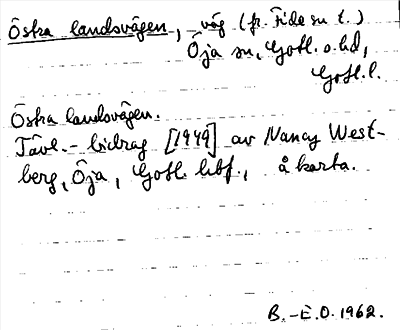 Östra landsvägen, väg (fr. Fide sn t.)
Öja sn, Gotl. s. hd,
Gotl. l.
Östra landsvägen.
Tävl.-bidrag [1949] av Nancy West-
berg, Öja, Gotl. hbf., å karta.
B.-E.O. 1962.